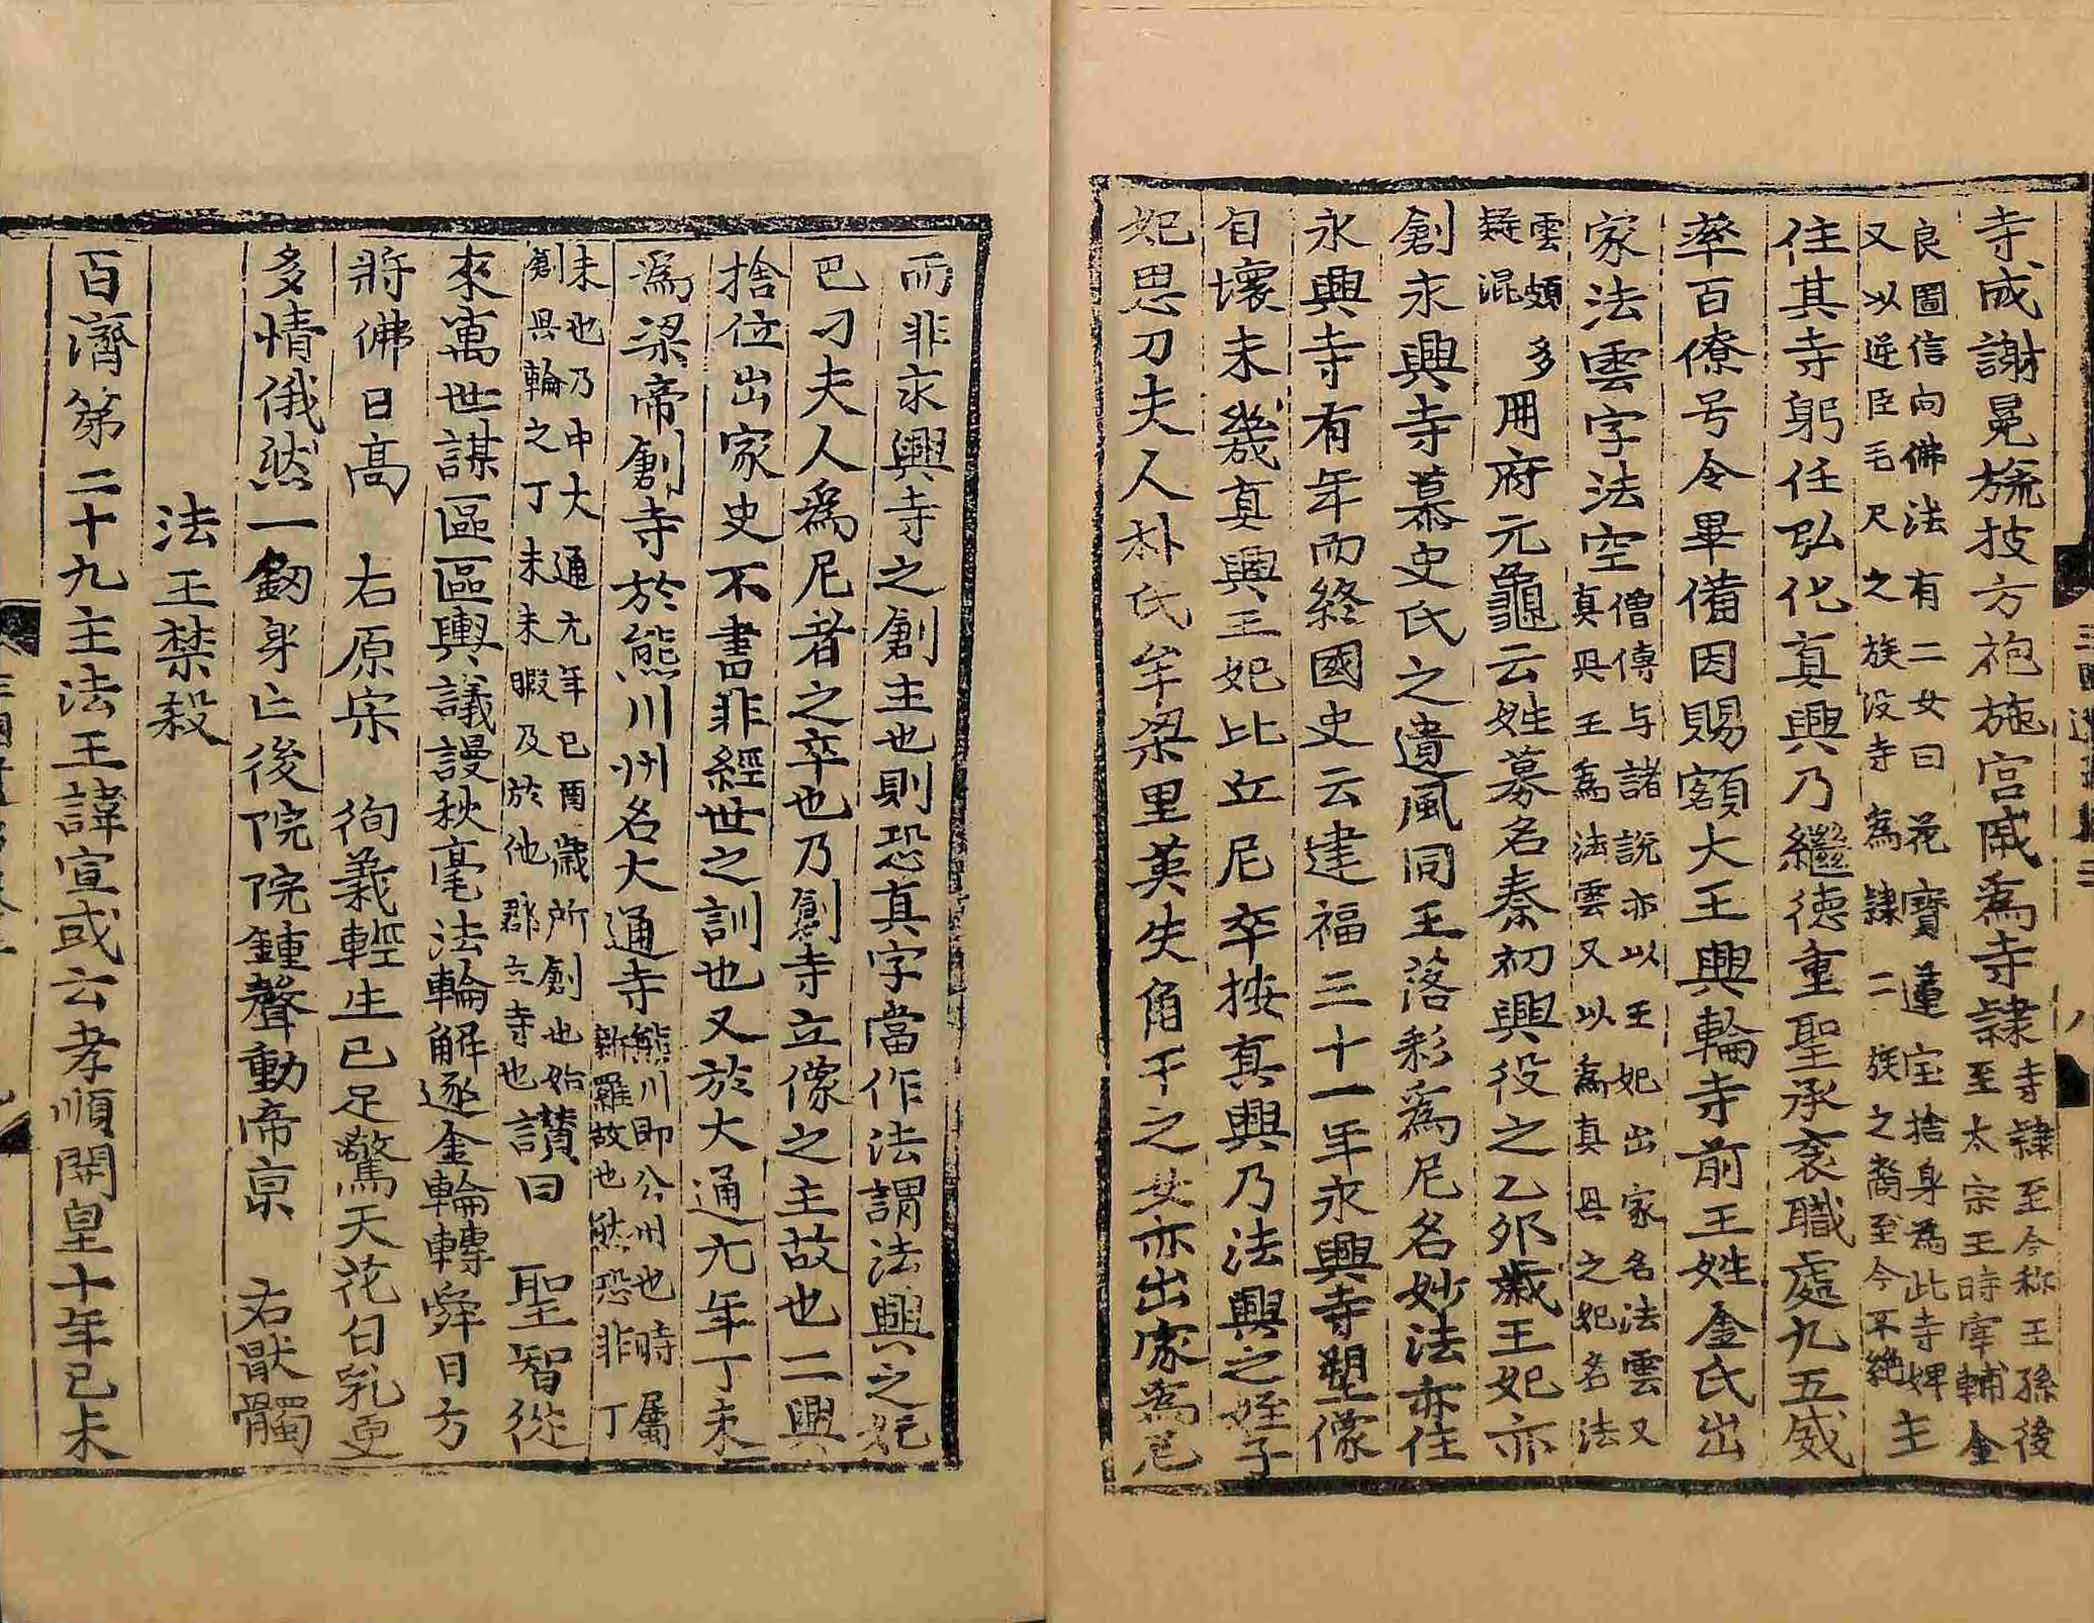 寺成謝冕旒披方袍施宮戚爲寺隷寺隷至今称王孫後至太宗王時宰輔金
良圖信向佛法有二女曰花寶蓮宝捨身為此寺婢又以逆臣毛尺之族没寺為隷二族之裔至今不絶主
住其寺躬任弘化真興乃繼德重聖承衮職處九五威
率百僚号令畢備因賜額大王興輪寺前王姓金氏出
家法雲字法空僧傳与諸說亦以王妃出家名法雲又真興王為法雲又以為真興之妃名法
雲頗多疑混冊府元龜云姓募名秦初興役之乙卯歲王妃亦
創永興寺慕史氏之遺風同王落彩爲尼名妙法亦住
永興寺有年而終國史云建福三十一年永興寺塑像
自壞未幾真興王妃比丘尼卒按真興乃法興之姪子
妃思刀夫人朴氏牟梁里英失角干之女亦出家爲尼
而非永興寺之創主也則恐真字當作法謂法興之妃
巴刁夫人爲尼者之卒也乃創寺立像之主故也二興
捨位出家史不書非經世之訓也又於大通元年丁未
爲梁帝創寺於熊川州名大通寺熊川即公州也時屬新羅故也然恐非丁
未也乃中大通元年己酉歲所創也始創興輪之丁未未暇及於他郡立寺也讃曰 聖智從
來萬世謀區區輿議謾秋毫法輪解逐金輪轉舜日方
將佛日高 右原宗 徇義輕生已足驚天花白乳更
多情俄然一釰身亡後院院鍾聲動帝京 右猒髑
法王禁殺
百濟第二十九主法王諱宣或云孝順開皇十年己未